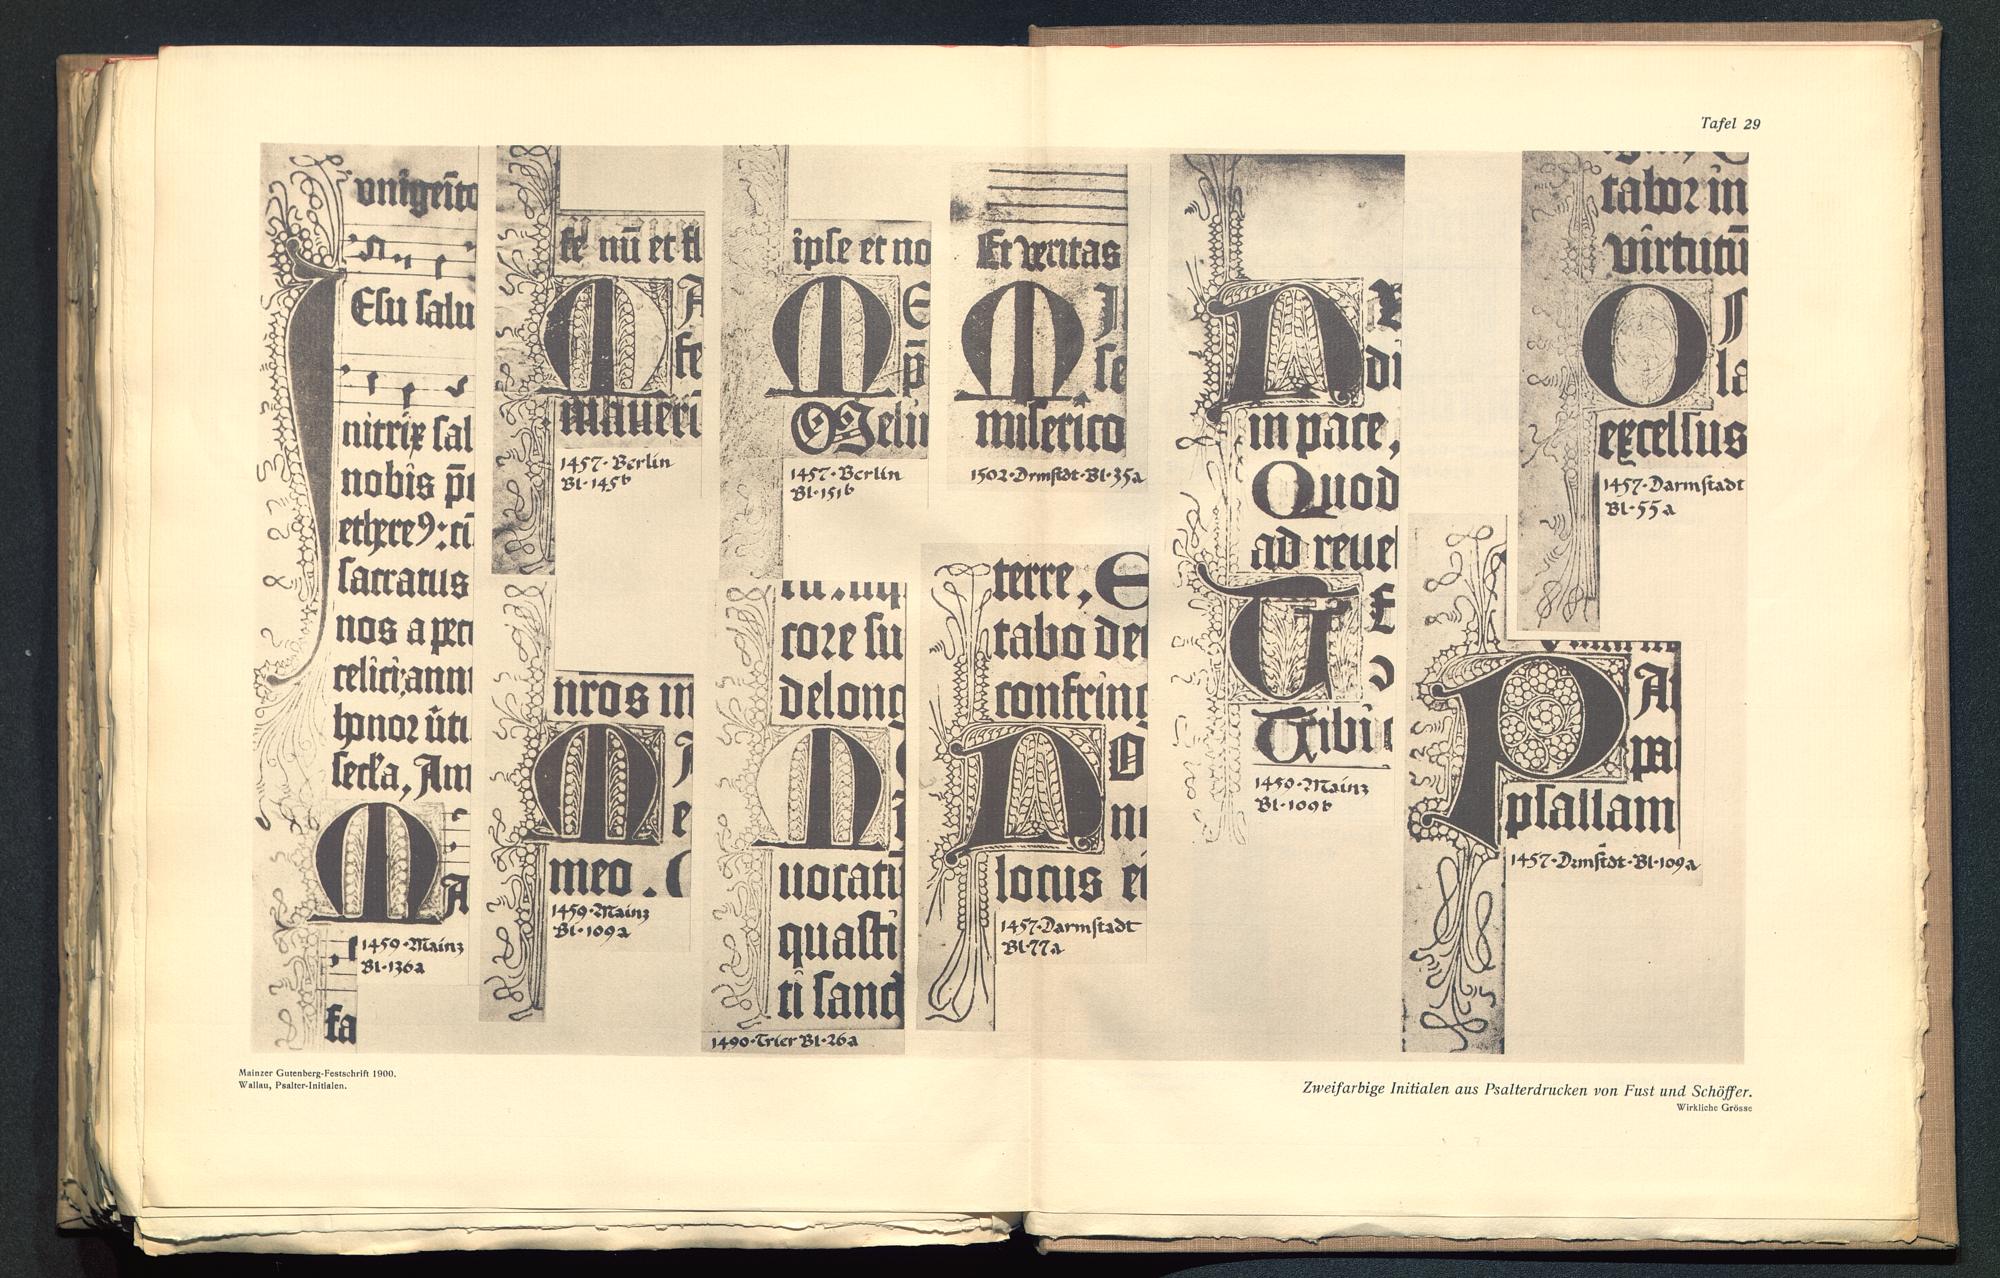 Tafel 29
unigeīto
Esu salu
nitrix sal
nobis
ethere9: cū
sacratus
nos a pecc
celici; annu
honor ūti
secl'a, Am
A
1459·Mainz
Bl·136a
fa
fe nū et fl
A
fe
maueri
1457·Berlin
Bl·145b
nros in
A
e
meo.
1459·Mainz
Bl·109a
ipse et no
E
p̄
Meliu
1457·Berlin
Bl·151b
core su
delong
uocati
quasti
ti sanct
1490·Trier Bl·26a
Et veritas
M
se
miserico
1502·Drmstdt·Bl·35a
terre, E
tabo dei
confring
N
O
nu
locus ei
1457·Darmstadt
Bl·77a
N
di
in pace,
Quod
ad reuel
T
E
Tibi
1459·Mainz
Bl·109b
tabor in
virtutū
O
la
excelsus
1457·Darmstadt
Bl·55a
P
A
pa
psallam
1457·Drmstdt·Bl·109a
Mainzer Gutenberg-Festschrift 1900.
Wallau, Psalter-Initialen.
Zweifarbige Initialen aus Psalterdrucken von Fust und Schöffer.
Wirkliche Grösse